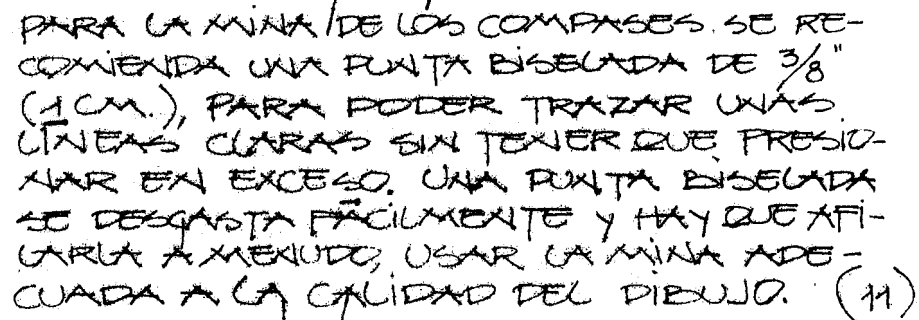 PARA LA MINA DE LOS COMPASES SE RE-
COMIENDA UNA PUNTA BISELADA DE 3/8"
(1 CM.), PARA PODER TRAZAR UNAS
LÍNEAS CLARAS SIN TENER QUE PRESIO-
NAR EN EXCESO. UNA PUNTA BISELADA
SE DESGASTA FÁCILMENTE Y HAY QUE AFI-
LARLA A MENUDO, USAR LA MINA ADE-
CUADA A LA CALIDAD DEL DIBUJO. (11)